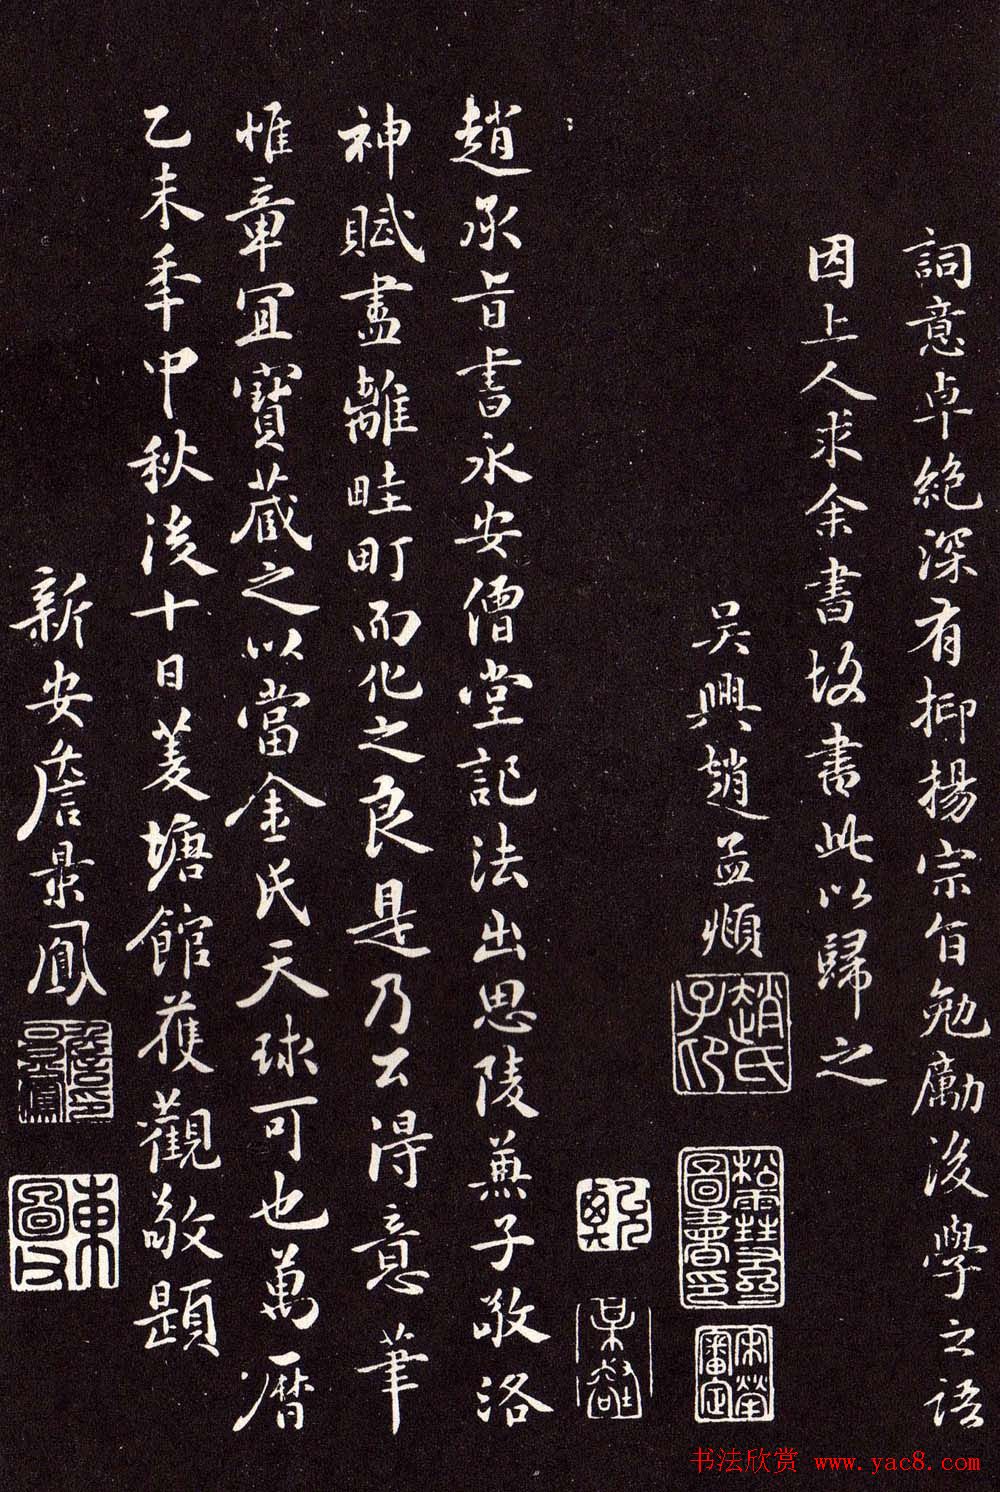 詞意卓絶深有抑揚宗旨勉勵後學之語
因上人求余書故書此以歸之
吴興趙孟頫
趙氏子印
松雪齋圖書印
宋犖審定
乾
趙承旨書永安僧堂記法出思陵兼子敬洛
神賦盡離畦町而化之良是乃公得意筆
惟章宜寶藏之以當金氏天球可也萬曆
乙未年中秋後十日菱塘館獲觀敬題
新安詹景鳳
东圖父
书法欣赏 www.yac8.com